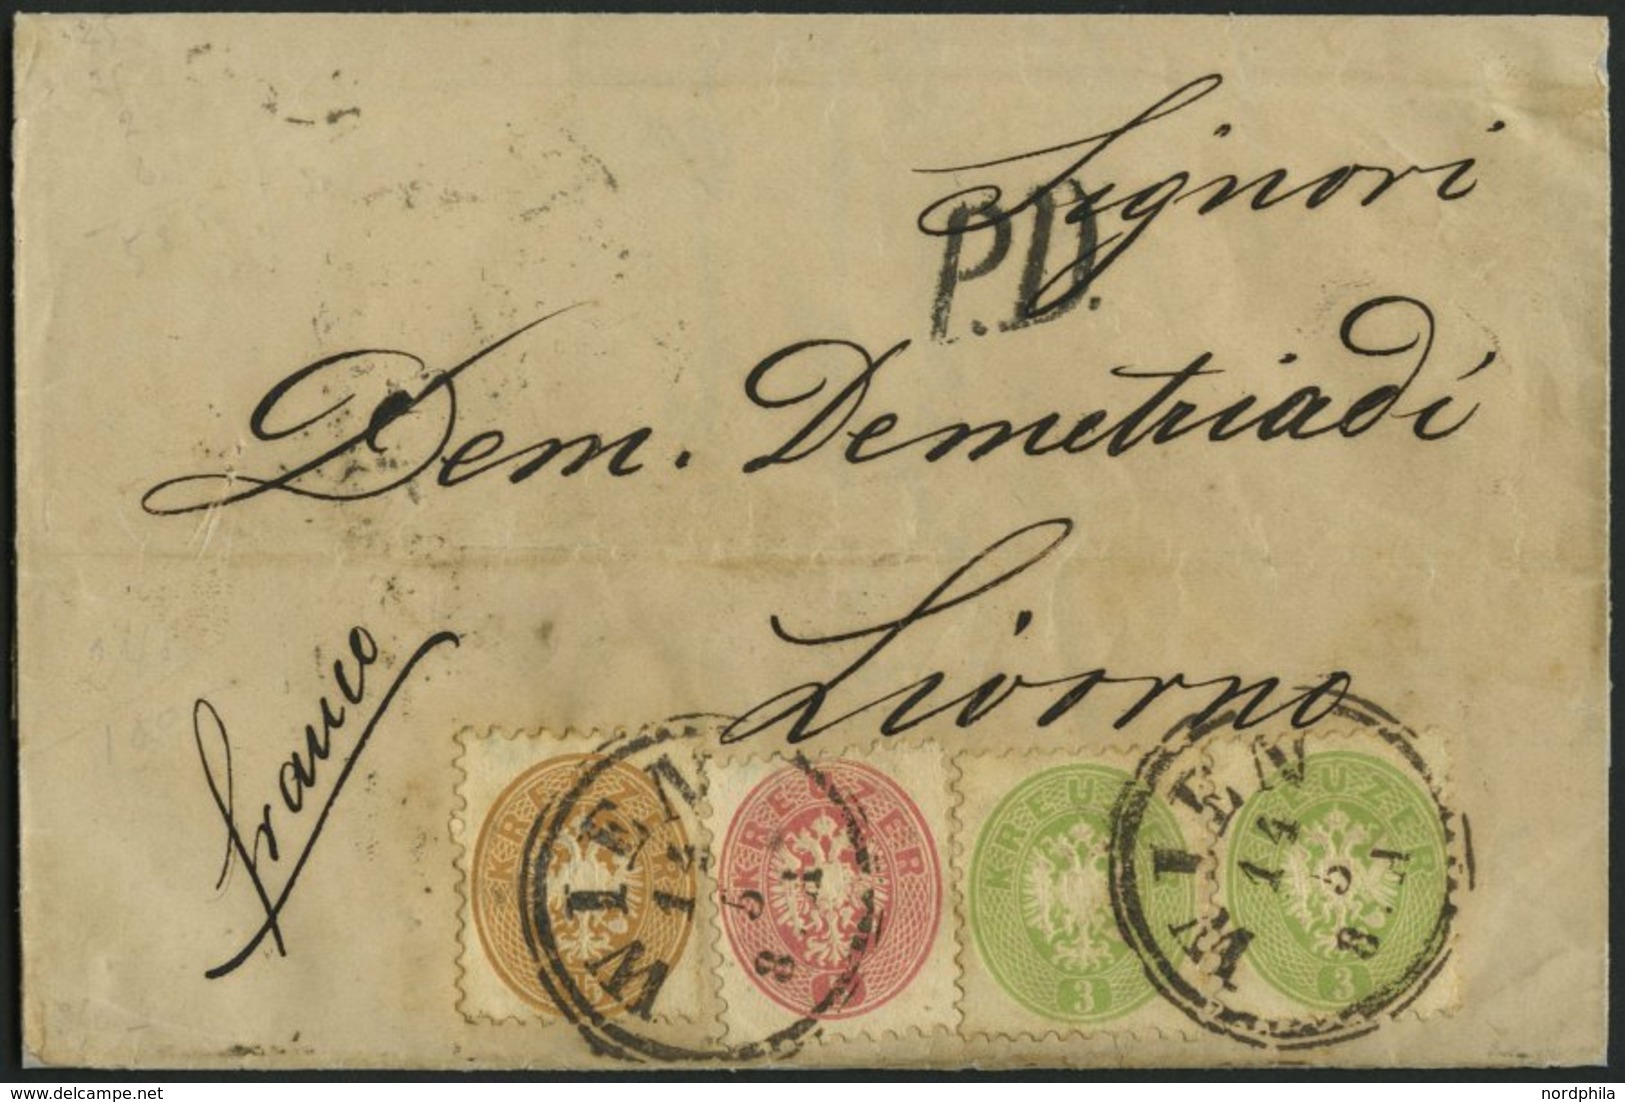 Signori
P.D.
Dem. Demetriadi
Livorno
franco
WIEN
14
5
8.A
WIEN
14
5
8.A
KREUZER
KREUZER
KREUZER
3
KREUZER
3
nordphila